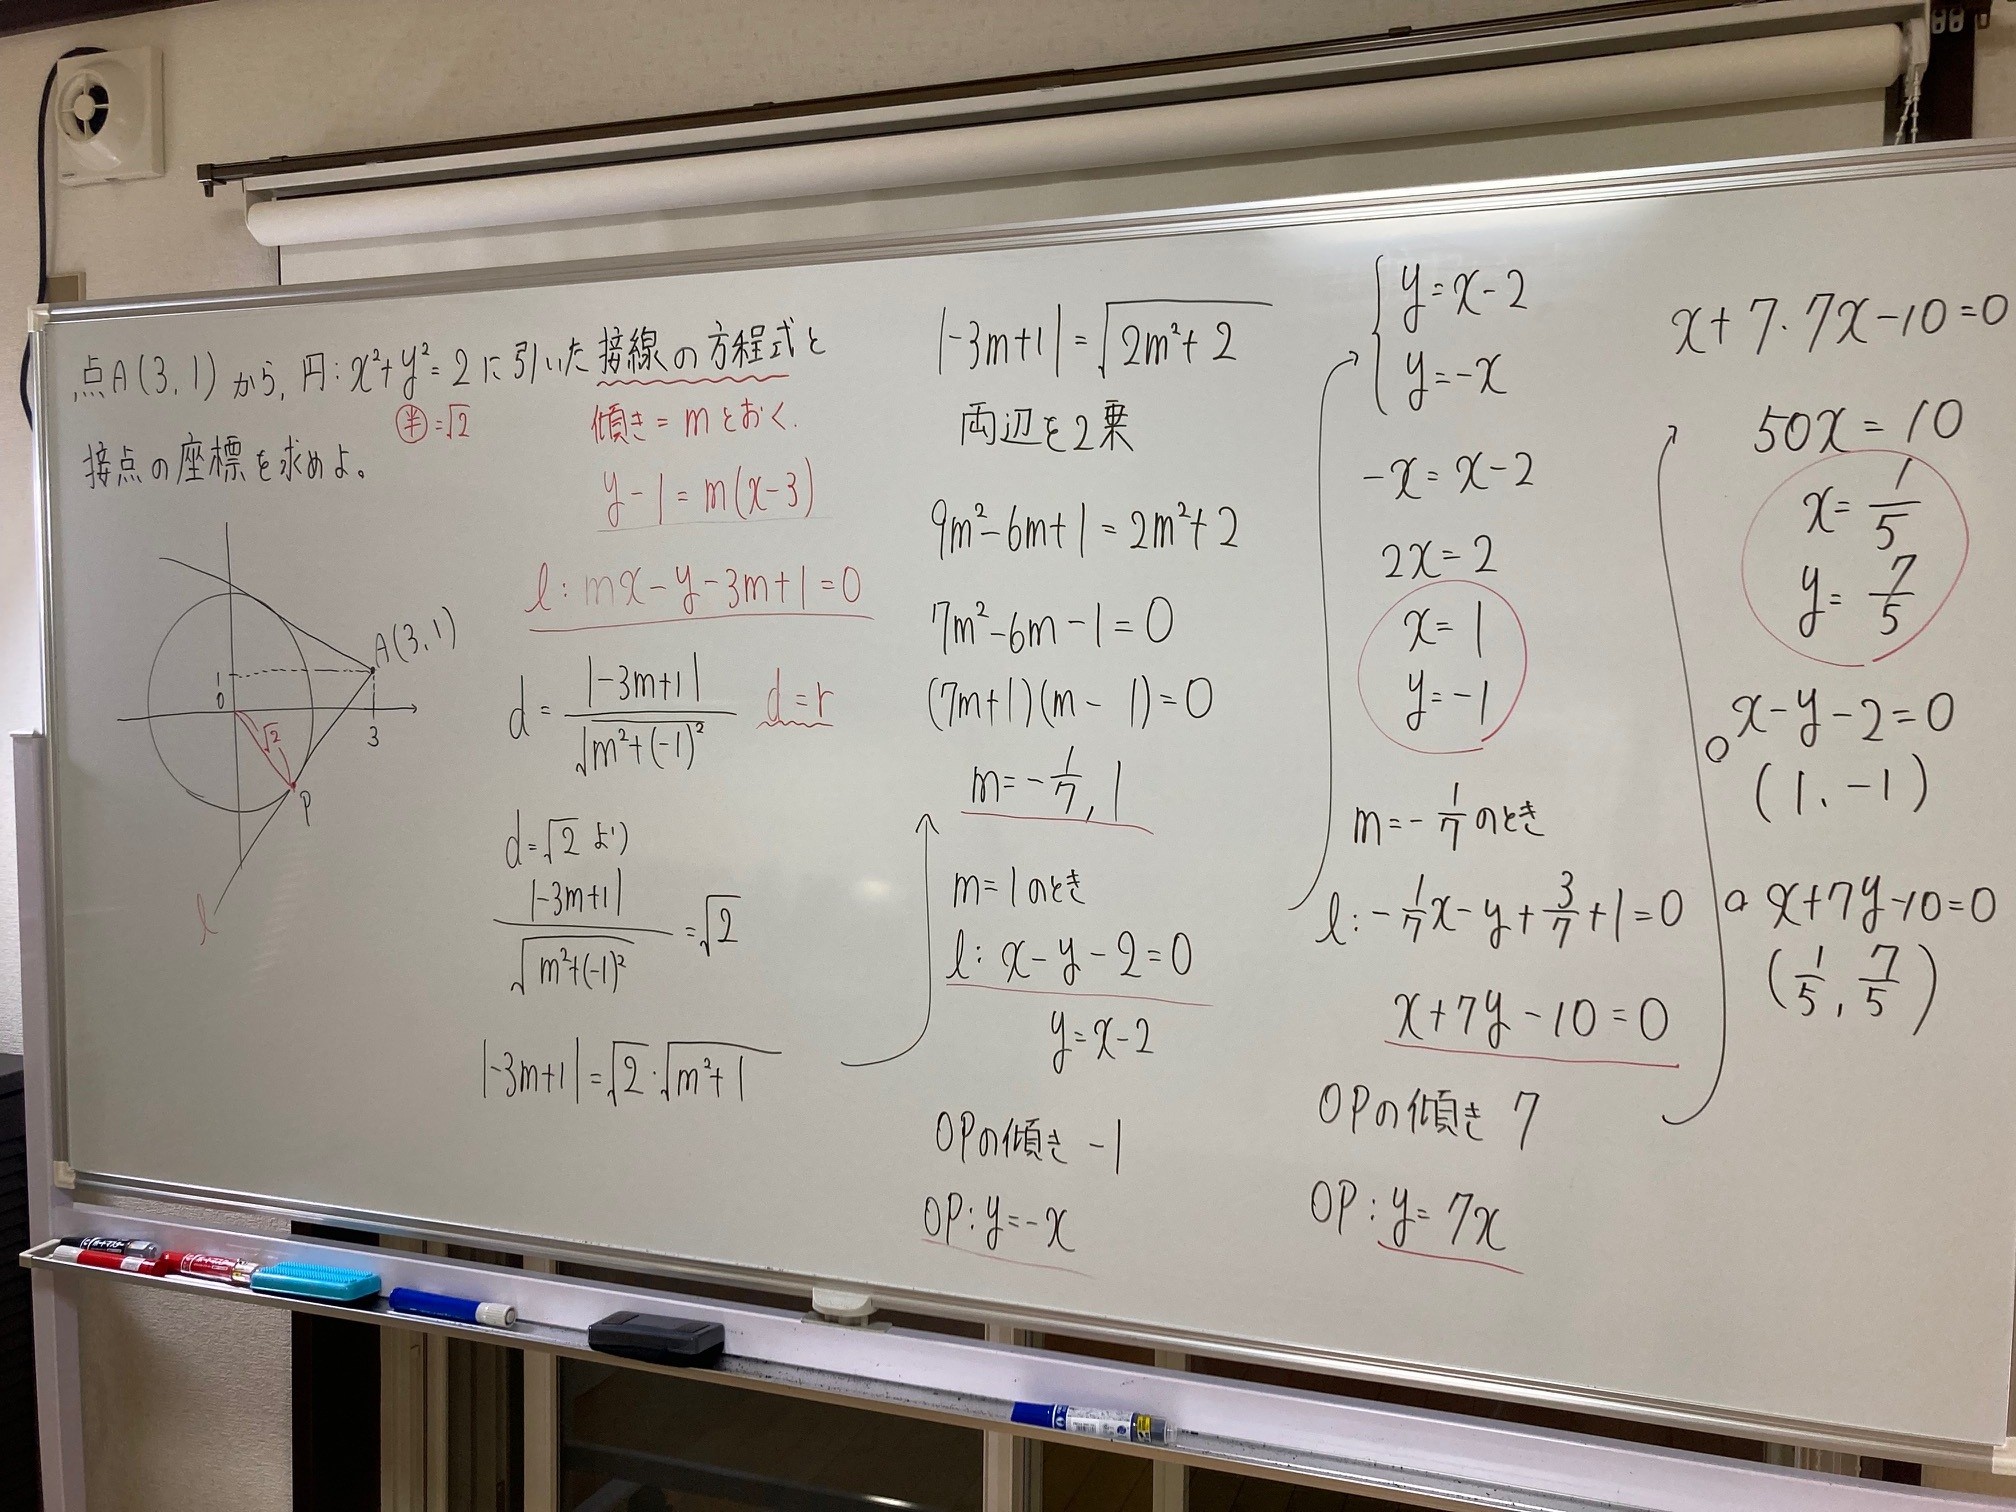 点A(3,1)から,円:x²+y²=2に引いた接線の方程式と
接点の座標を求めよ。
半=√2
傾き=mとおく.
y-1=m(x-3)
l:mx-y-3m+1=0
A(3,1)
1
0
√2
3
P
l
d=|-3m+1|/√m²+(-1)²
d=r
d=√2より
|-3m+1|/√m²+(-1)²=√2
|-3m+1|=√2·√m²+1
|-3m+1|=√2m²+2
両辺を2乗
9m²-6m+1=2m²+2
7m²-6m-1=0
(7m+1)(m-1)=0
m=-1/7,1
m=1のとき
l:x-y-2=0
y=x-2
OPの傾き -1
OP:y=-x
y=x-2
y=-x
-x=x-2
2x=2
x=1
y=-1
m=-1/7のとき
l:-1/7x-y+3/7+1=0
x+7y-10=0
OPの傾き 7
OP:y=7x
x+7·7x-10=0
50x=10
x=1/5
y=7/5
x-y-2=0
(1,-1)
x+7y-10=0
(1/5,7/5)